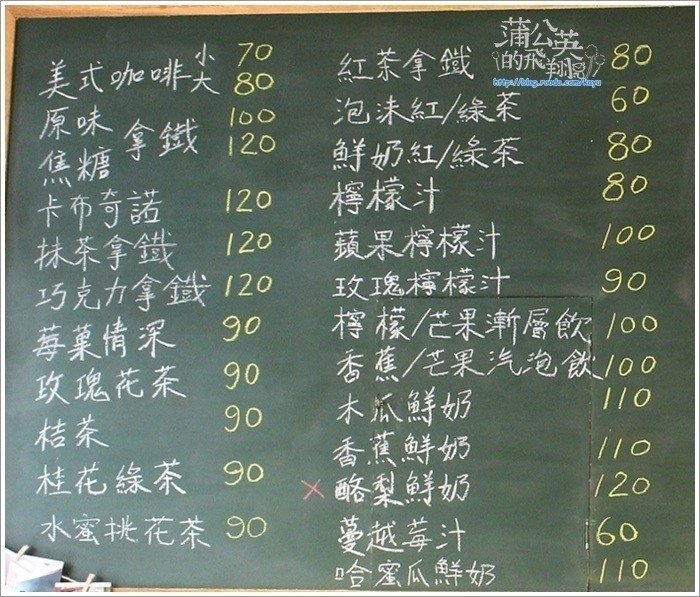 美式咖啡 小 70
大 80
原味 拿鐵 100
焦糖 120
卡布奇諾 120
抹茶拿鐵 120
巧克力拿鐵 120
莓菓情深 90
玫瑰花茶 90
桔茶 90
桂花綠茶 90
水蜜桃花茶 90
紅茶拿鐵 80
泡沫紅/綠茶 60
鮮奶紅/綠茶 80
檸檬汁 80
蘋果檸檬汁 100
玫瑰檸檬汁 90
檸檬/芒果漸層飲 100
香蕉/芒果汽泡飲 100
木瓜鮮奶 110
香蕉鮮奶 110
×酪梨鮮奶 120
蔓越莓汁 60
哈蜜瓜鮮奶 110
蒲公英
的飛翔
http://blog.roodo.com/kayu